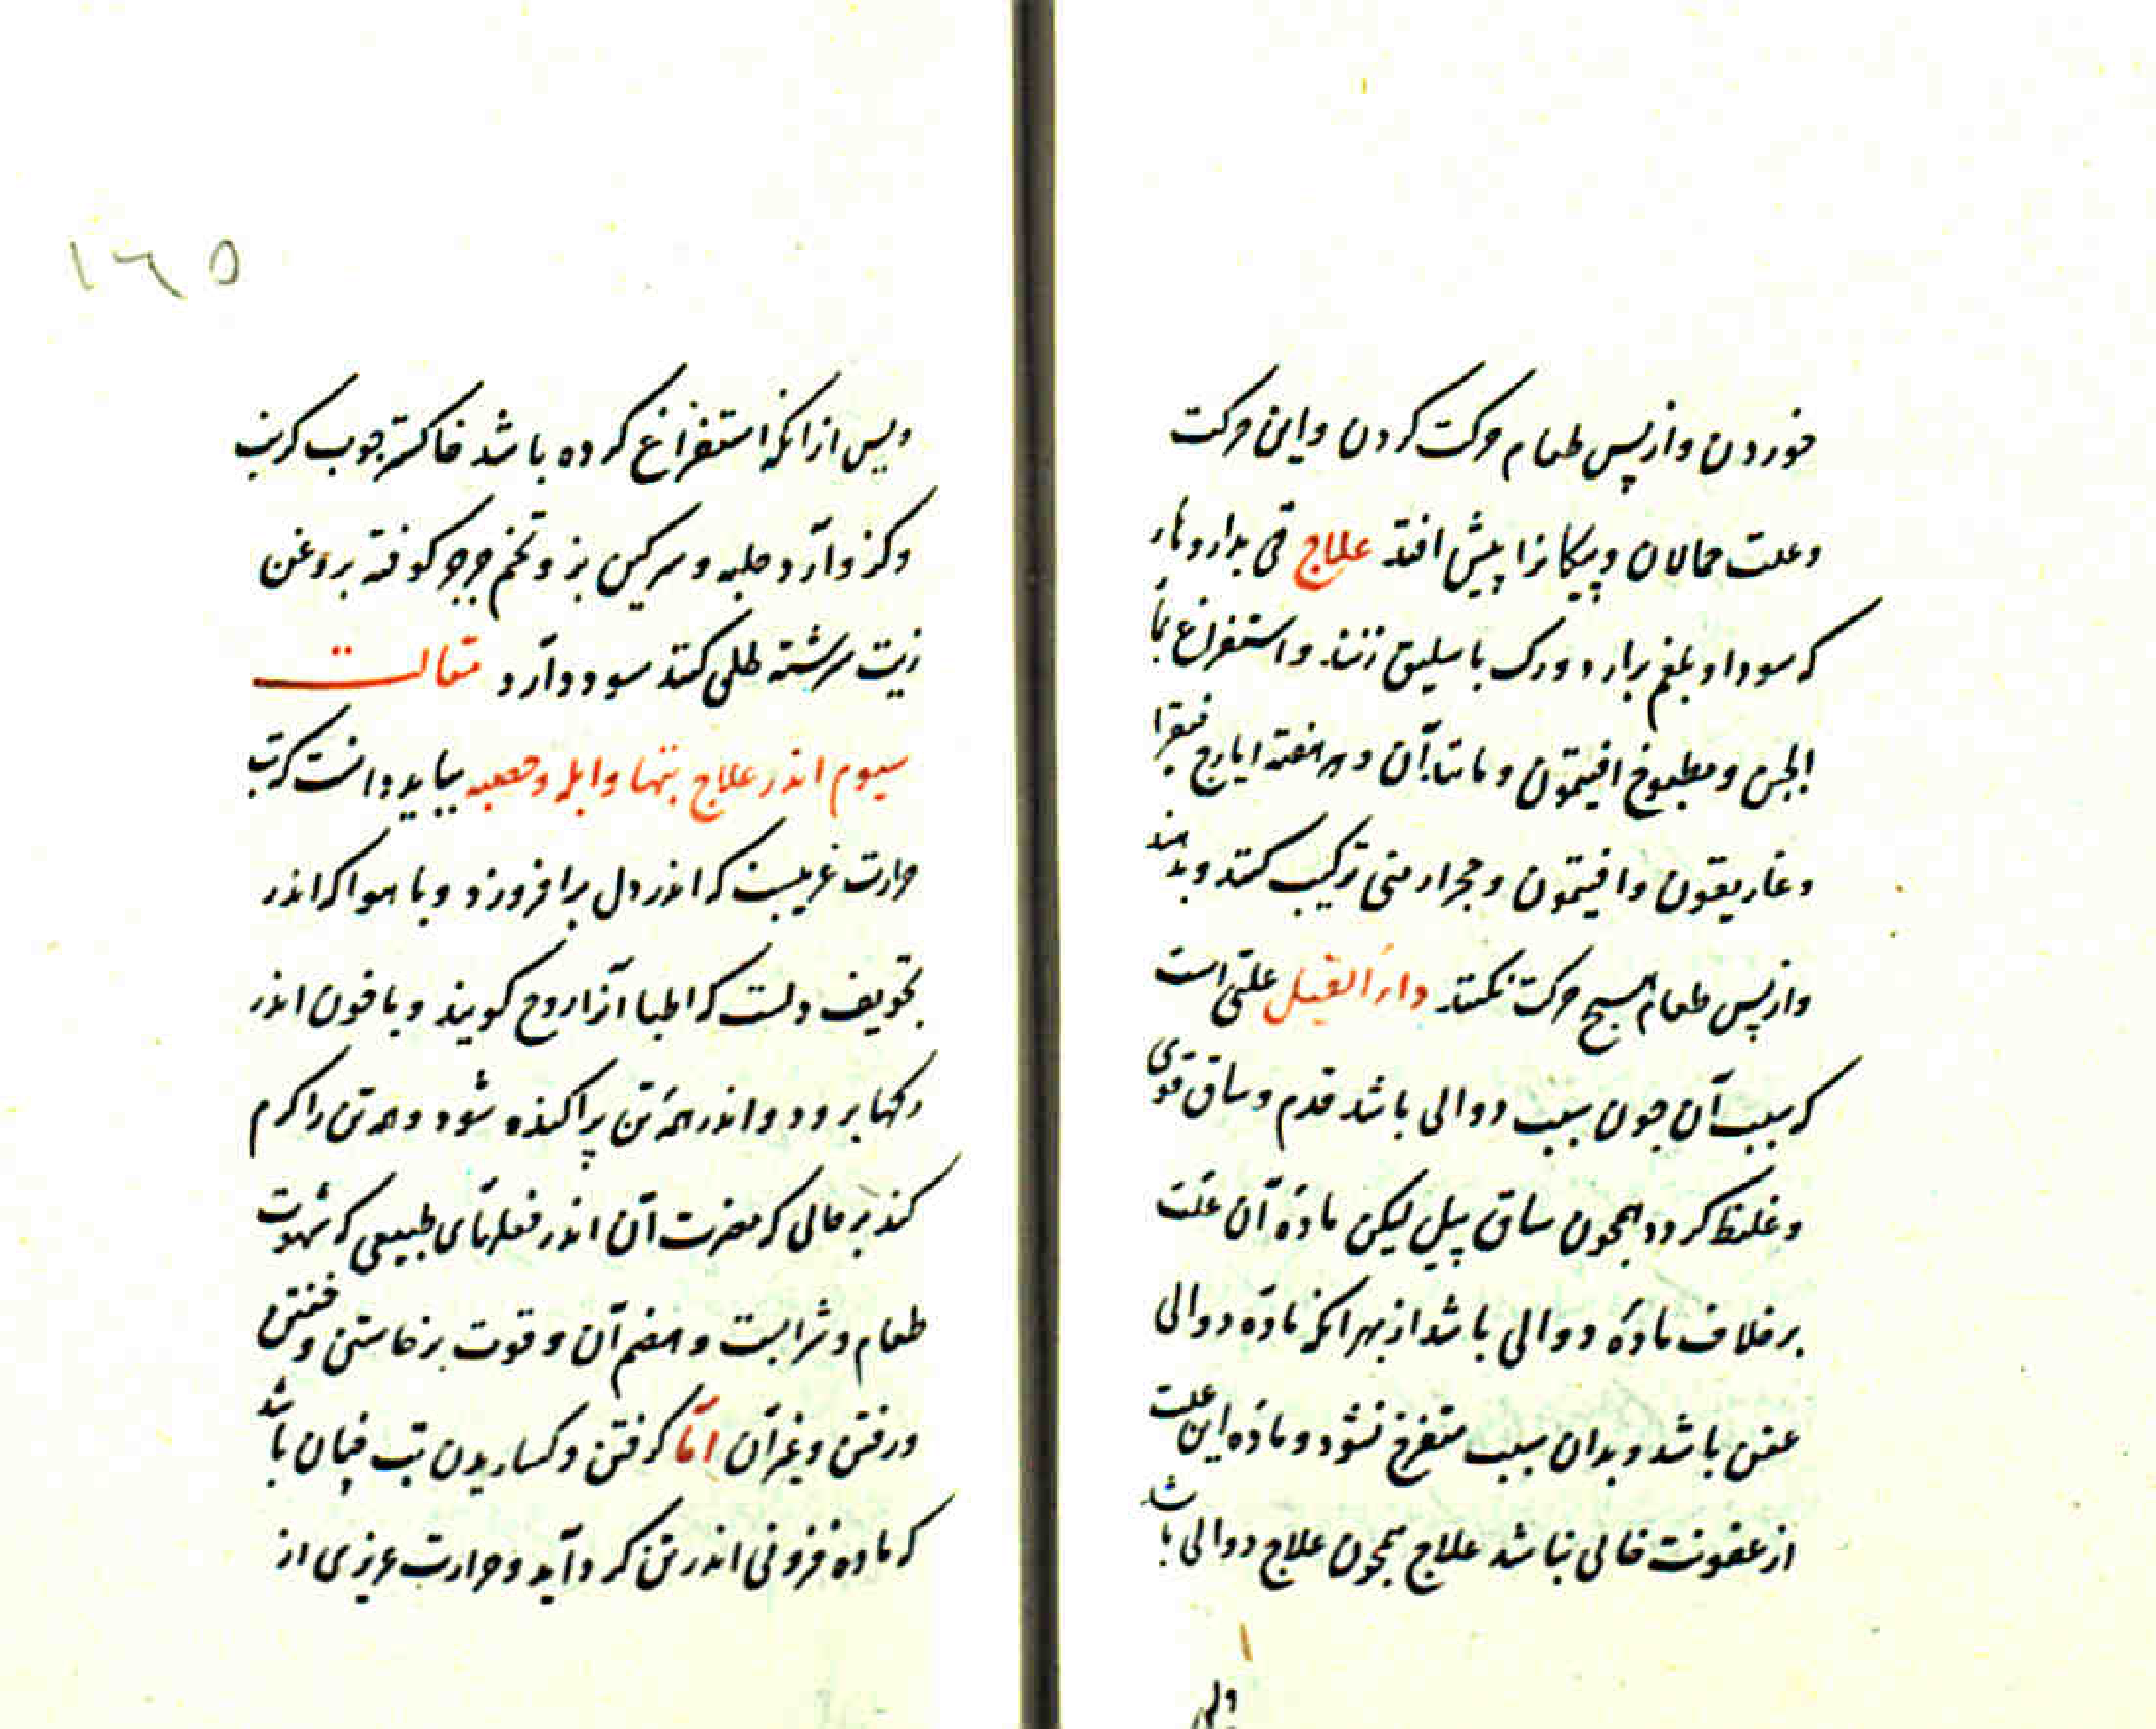 خوردن و از پس طعام حرکت کردن و این حرکت
و علت حمالان و پیکانرا پیش افتد علاج قی بداروهاء
که سودا و بلغم برآرد و رک باسلیق زنند و استفراغ بماء
الجبن و مطبوخ افیتمون و مانند آن و هر هفته ایارج فیقرا
و غاریقون و افیتمون و حجر ارمنی ترکیب کنند و بدهند
و از پس طعام هیچ حرکت نکنند داء الفیل علتی است
که سبب آن جون سبب دوالی باشد قدم و ساق قوی
و غلیظ کردد همجون ساق پیل لیکن مادهٔ آن علت
برخلاف مادهٔ دوالی باشد از بهر آنکه مادهٔ دوالی
عفن باشد و بدان سبب متقرح نشود و مادهٔ این علت
از عفونت خالی نباشد علاج همجون علاج دوالی باشد
و پس
و پس از آنکه استفراغ کرده باشد خاکستر جوب کرنب
و کز و آرد حلبه و سرکین بز و تخم جرجر کوفته بروغن
زیت سرشته طلی کنند سود دارد مقالت
سیوم اندر علاج تبها و ابله و حصبه بباید دانست که تب
حرارت غریبست که اندر دل برافروزد و با هوا که اندر
تجویف دلست که اطبا آنرا روح کویند و با خون اندر
رکها برود و اندر همه تن پراکنده شود و همه تن را کرم
کند بر حالی که مضرت آن اندر فعلهای طبیعی که شهوت
طعام و شرابست و هضم آن و قوت برخاستن و خفتن
و رفتن و غیر آن اما کرفتن و کساریدن تب جنان باشد
که ماده فزونی اندر تن کرد آید و حرارت عزیزی از
١٦٥